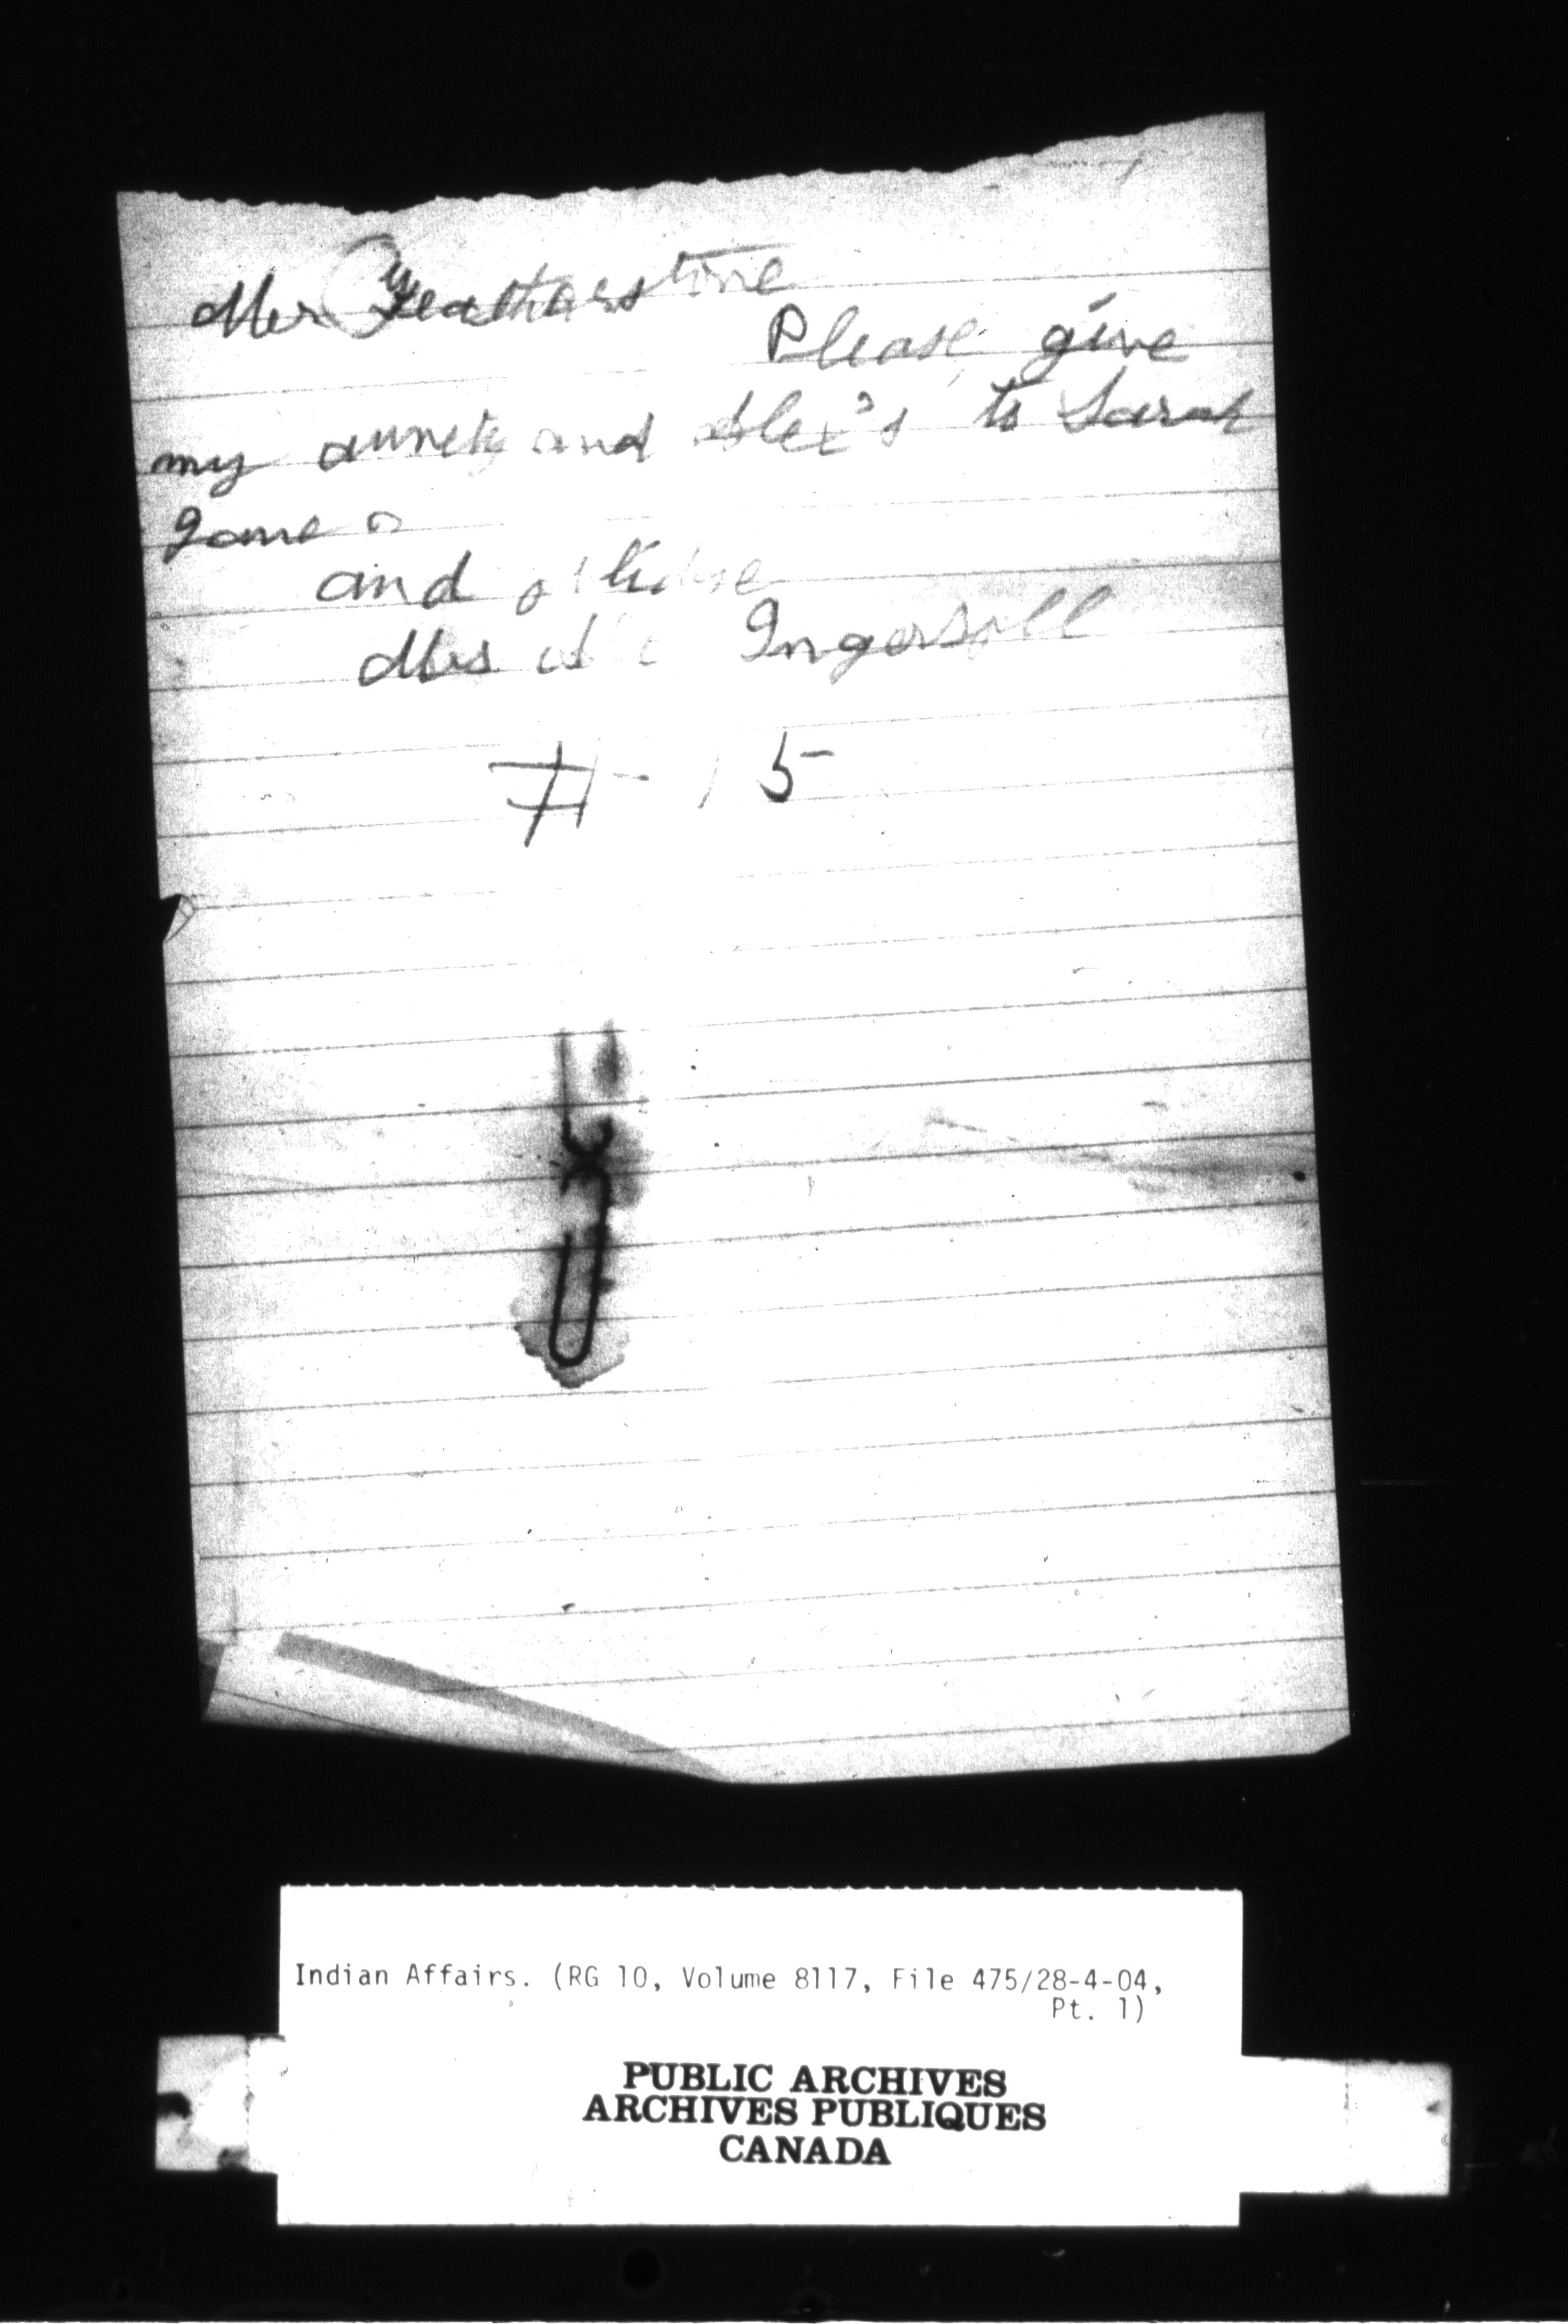 Mr Featherstone
Please give
my and Alex's to Sarah
and
Mrs Ingersoll
# 15
Indian Affairs. (RG 10, Volume 8117, File 475/28-4-04,
Pt. 1)
PUBLIC ARCHIVES
ARCHIVES PUBLIQUES
CANADA